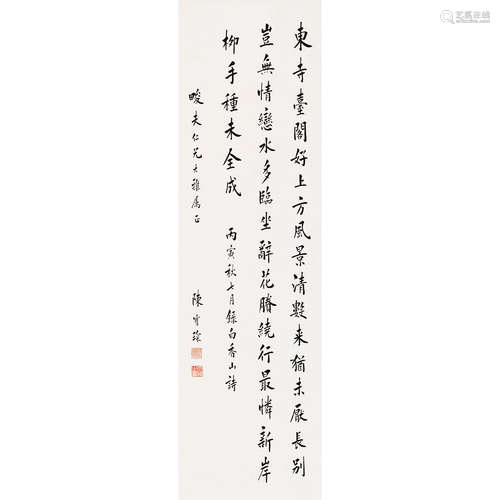 東寺臺閣好上方風景清數来猶未厭長別
豈無情戀水多臨坐辭花賸繞行最憐新岸
柳手種未全成
丙寅秋七月錄白香山詩
畯夫仁兄大雅屬正
陳寶琛